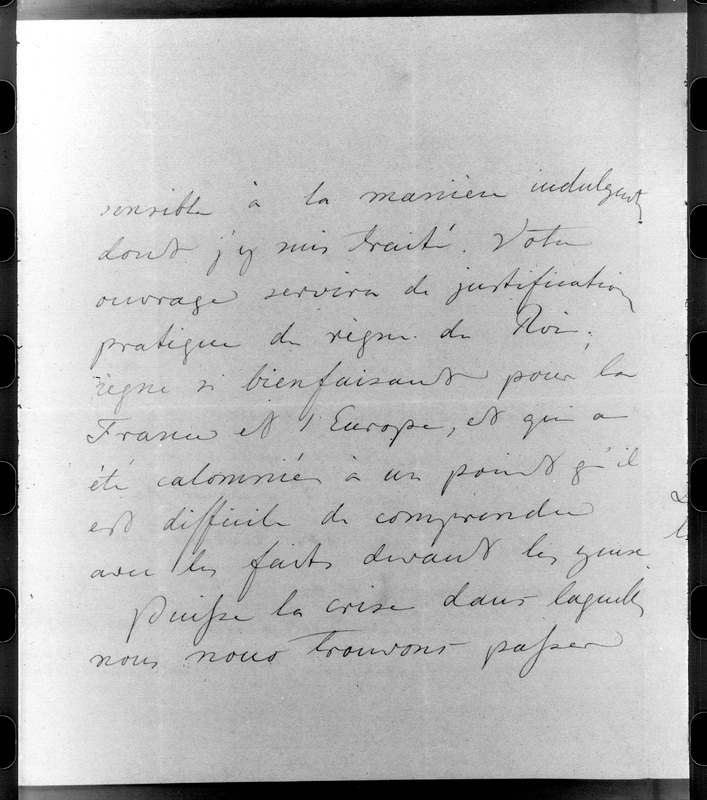 sensible à la manière indulgente
dont j'y suis traité. Votre
ouvrage servira de justification
pratique du règne du Roi;
règne si bienfaisant pour la
France et l'Europe, et qui a
été calomnié à un point qu'il
est difficile de comprendre
avec les faits devant les yeux.
Puisse la crise dans laquelle
nous nous trouvons passer